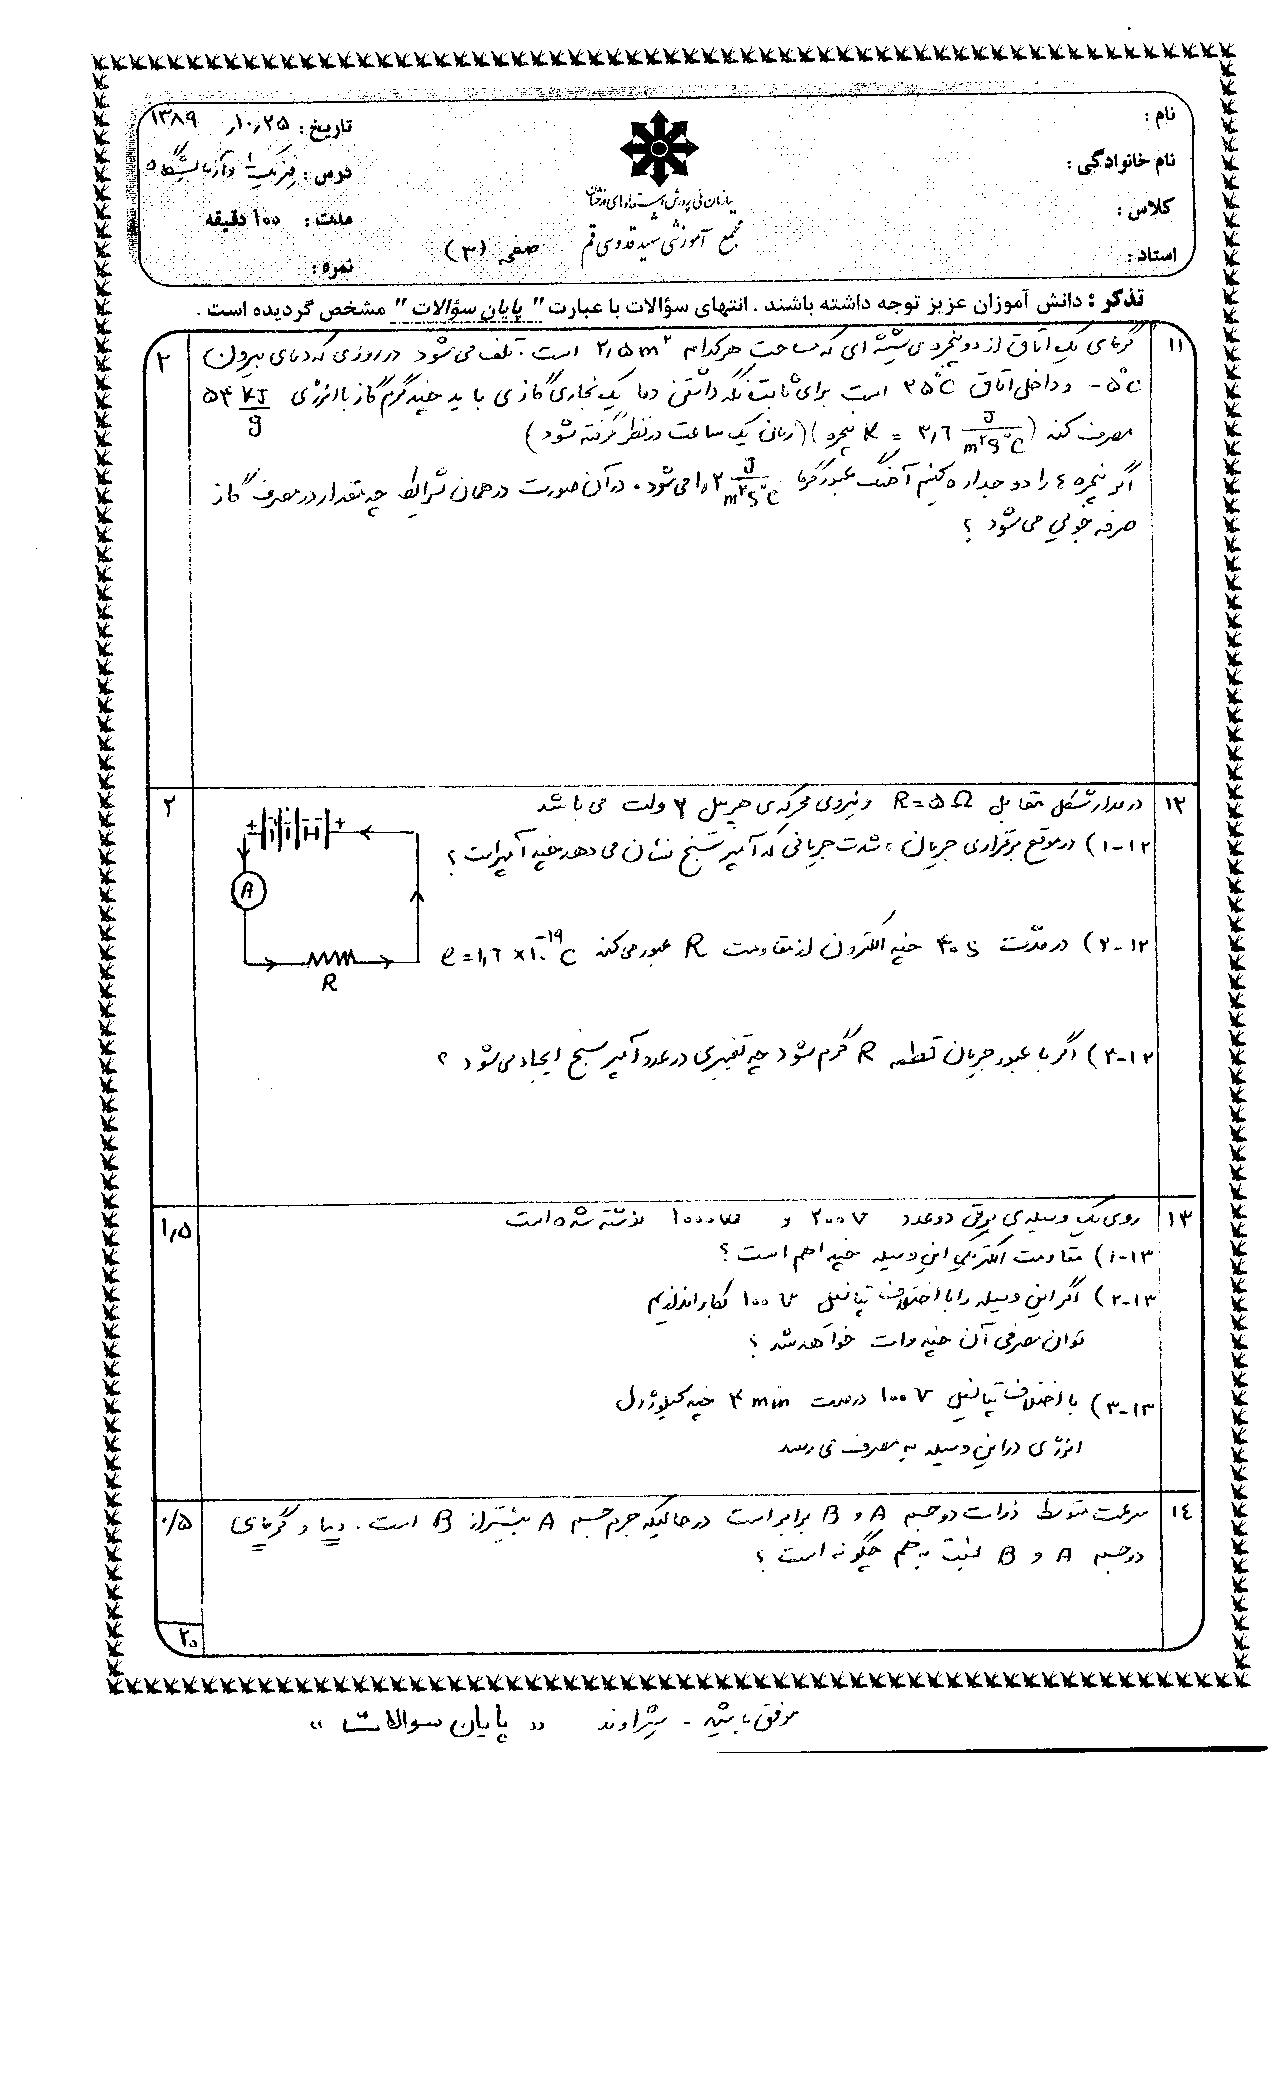 نام :
نام خانوادگی :
کلاس :
استاد :
سازمان ملی پرورش استعدادهای درخشان
مجتمع آموزشی شهید قدوسی قم
صفحه (۳)
تاریخ : ۱۰٫۲۵٫ ۱۳۸۹
درس : فیزیک ۱ و آزمایشگاه
مدت : ۱۰۰ دقیقه
نمره :
تذکر : دانش آموزان عزیز توجه داشته باشند . انتهای سؤالات با عبارت " پایان سؤالات " مشخص گردیده است .
۱۱ گرمای یک اتاق از دو پنجره ی شیشه ای که مساحت هرکدام ۲٫۵ m² است . تلف می شود در روزی که دمای بیرون ۲
-۵°C و داخل اتاق ۲۵°C است برای ثابت نگه داشتن دما یک بخاری گازی باید چند گرم گاز با انرژی ۵۴ kJ/g
مصرف کند (پنجره K = ۳٫۶ J/m²s°C) (زمان یک ساعت در نظر گرفته شود)
اگر پنجره ها را دو جداره کنیم آهنگ عبور گرما J/m²s°C می شود . در آن صورت در همان شرایط چه مقدار در مصرف گاز
صرفه جویی می شود ؟
۱۲ در مدار شکل مقابل R = ۵Ω و نیروی محرکه ی هر پیل ۲ ولت می باشد ۲
۱-۱۲) در موقع برقراری جریان ، شدت جریانی که آمپرسنج نشان می دهد چند آمپر است ؟
۲-۱۲) در مدت ۴۰ s چند الکترون از مقاومت R عبور می کند e = ۱٫۶ × ۱۰⁻¹⁹ C
۳-۱۲) اگر با عبور جریان قطعه R گرم شود چه تغییری در عدد آمپرسنج ایجاد می شود ؟
+ +
A
R
۱۳ روی یک وسیله ی برقی دو عدد ۲۰۰ V و ۱۰۰۰ W نوشته شده است ۱٫۵
۱-۱۳) مقاومت الکتریکی این وسیله چند اهم است ؟
۲-۱۳) اگر این وسیله را با اختلاف پتانسیل ۱۰۰ V بکار اندازیم
توان مصرفی آن چند وات خواهد شد ؟
۳-۱۳) با اختلاف پتانسیل ۱۰۰ V در مدت ۴ min چند کیلوژول
انرژی در این وسیله به مصرف می رسد
۱۴ سرعت متوسط ذرات دو جسم A و B برابر است در حالیکه جرم جسم A بیشتر از B است . دما و گرمای ۰/۵
دو جسم A و B نسبت به هم چگونه است ؟
۲۰
موفق باشید - بیژاوند « پایان سوالات »